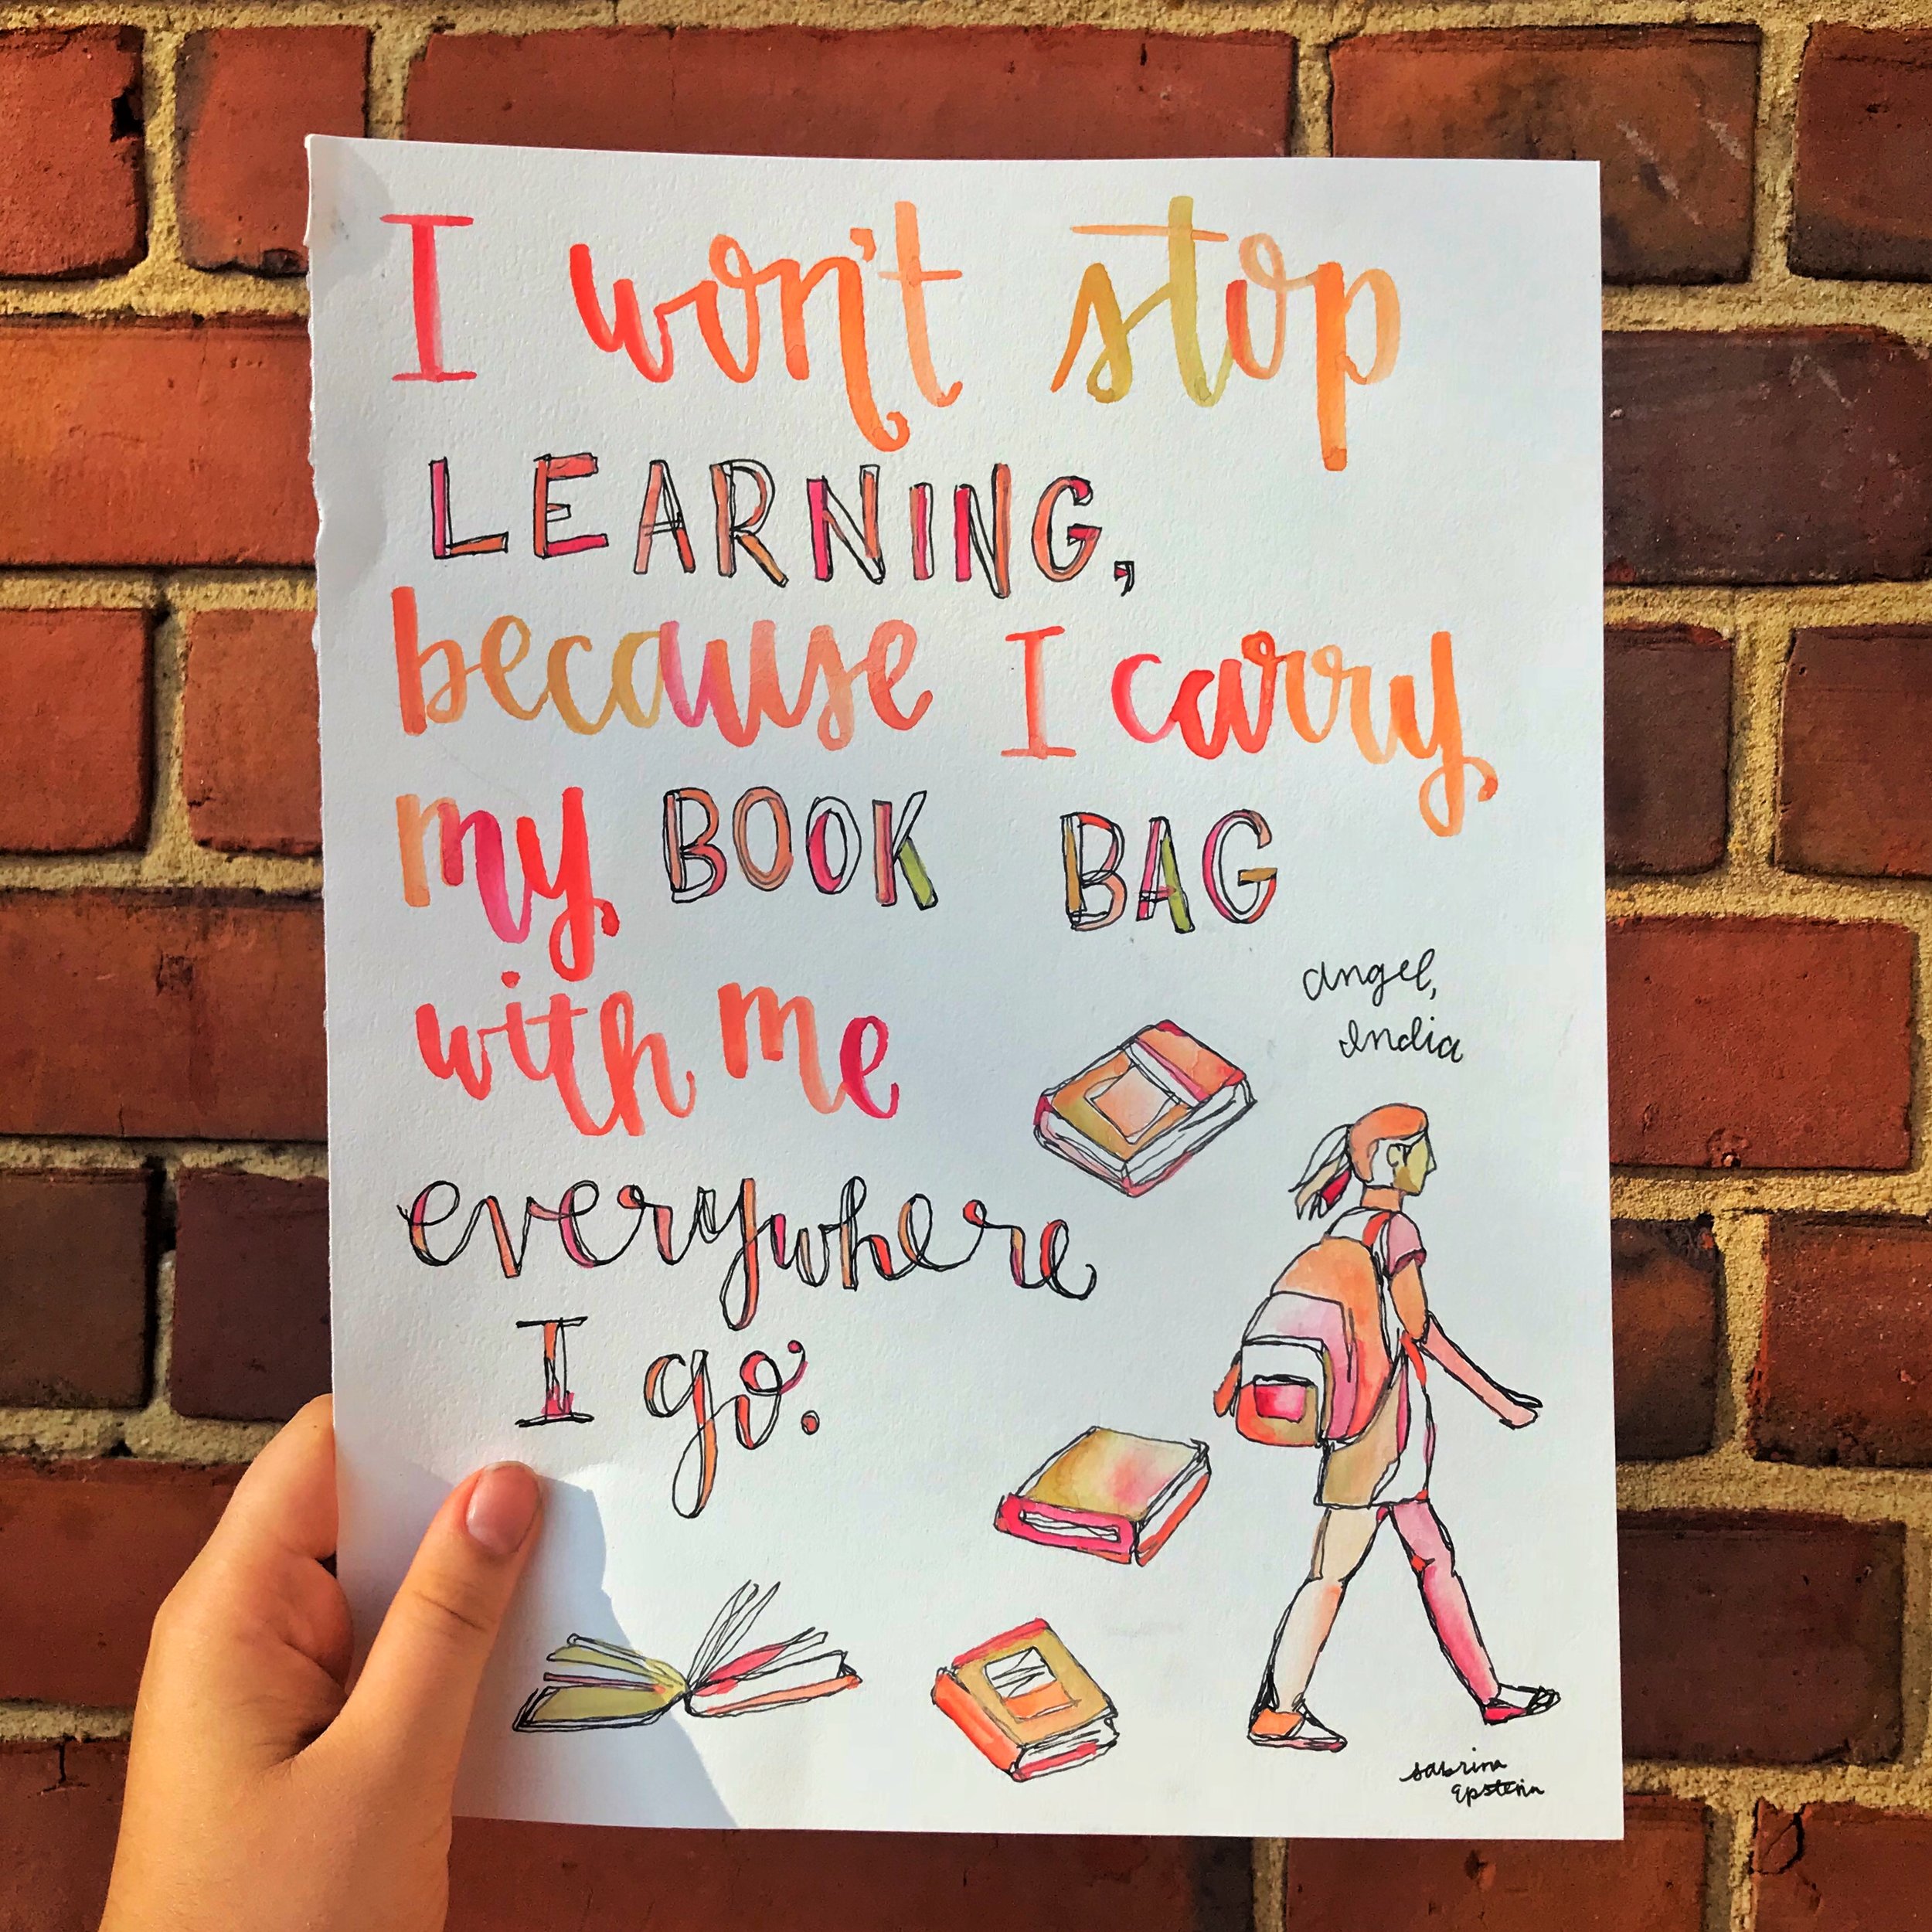 I won't stop
LEARNING,
because I carry
my BOOK BAG
with me
everywhere
I go.
angel,
India
sabrina
epstein